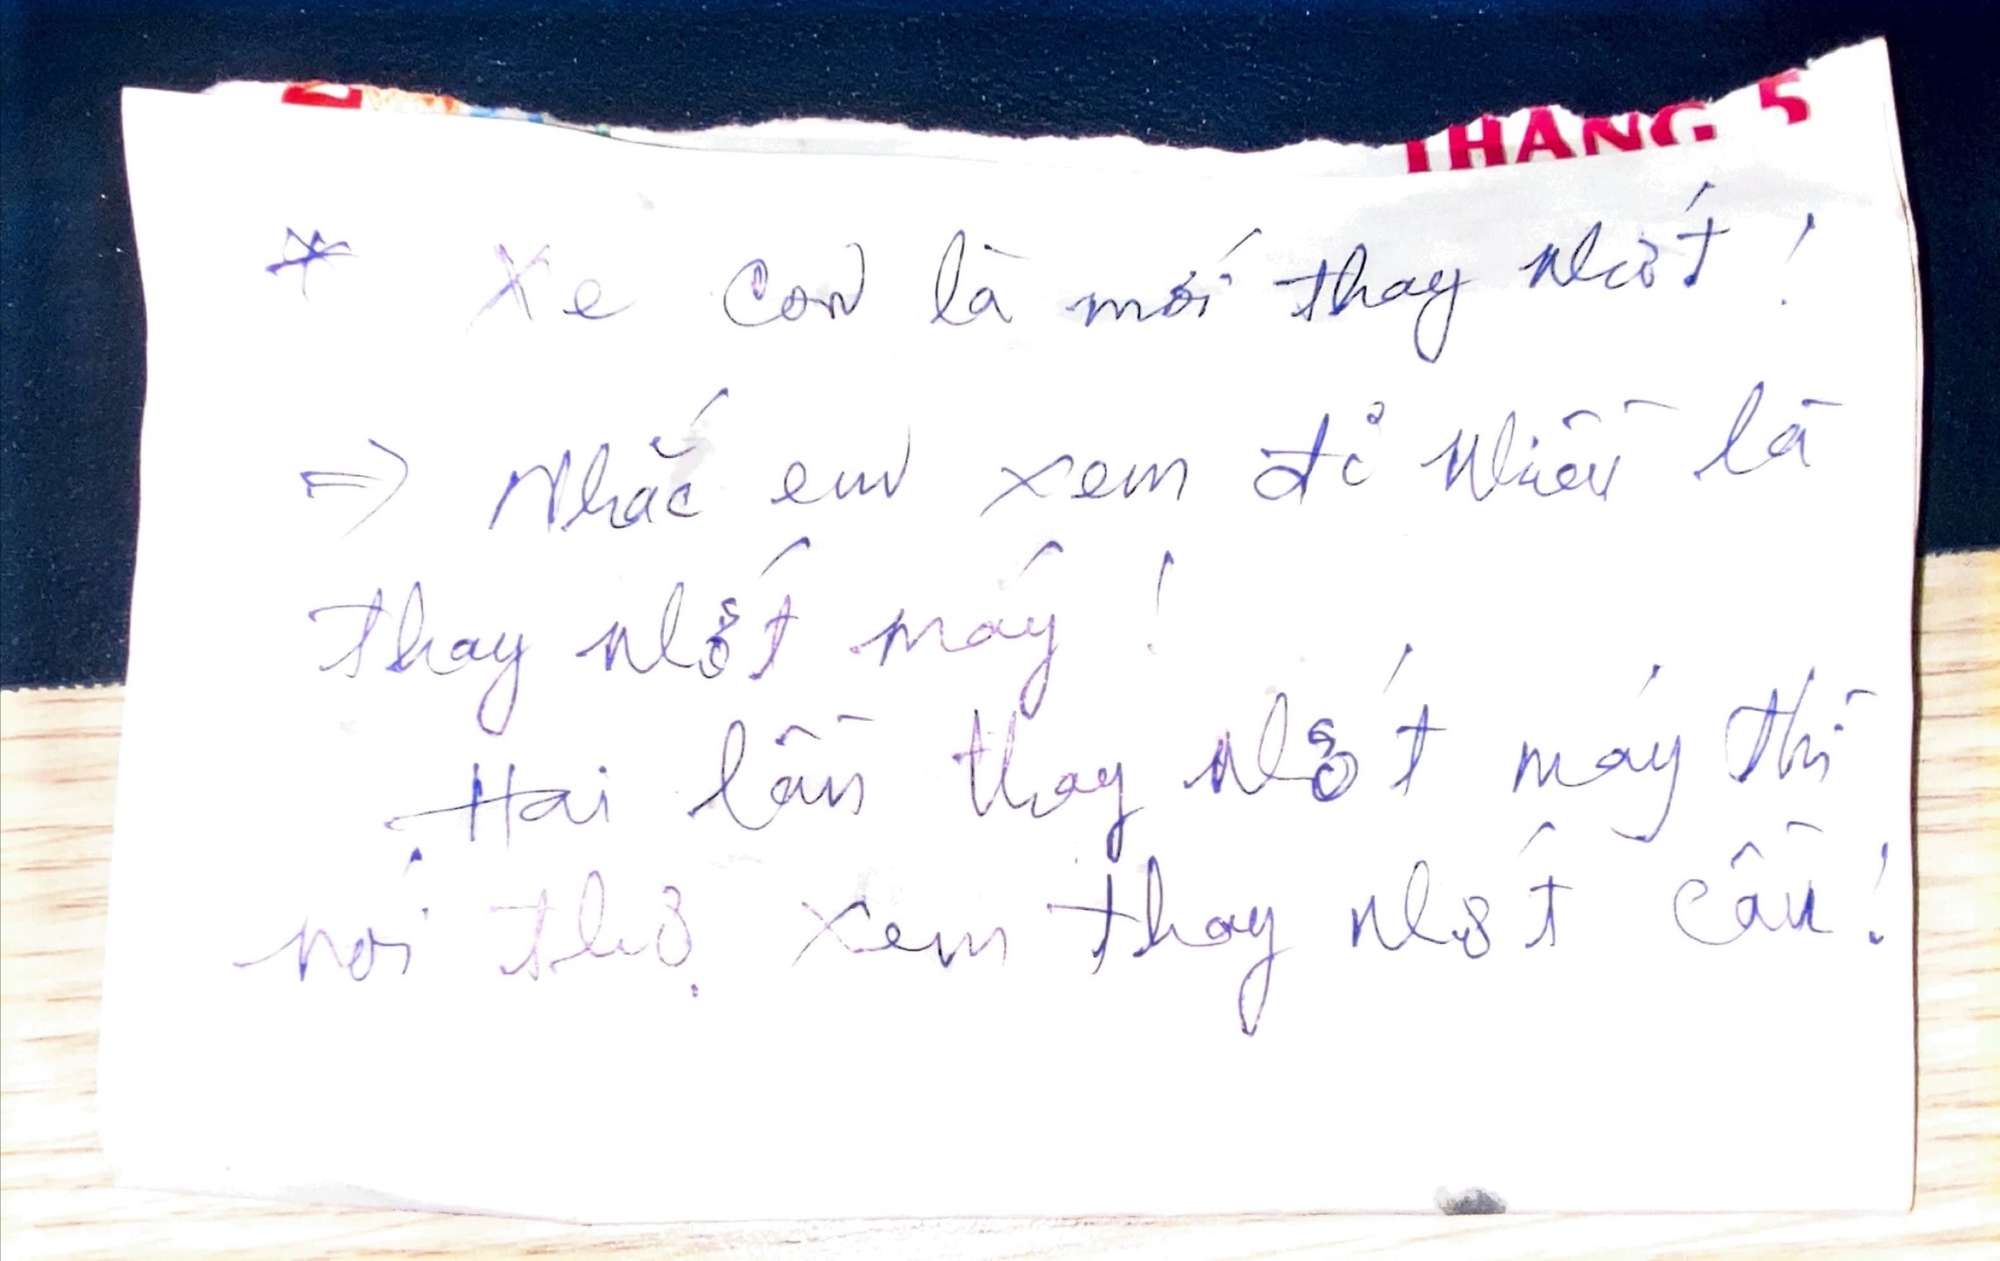 THÁNG 5
* Xe con là mới thay nhớt!
⇒ Nhắc em xem đi nhiều là
thay nhớt máy!
Hai lần thay nhớt máy thì
nói thợ xem thay nhớt cầu!